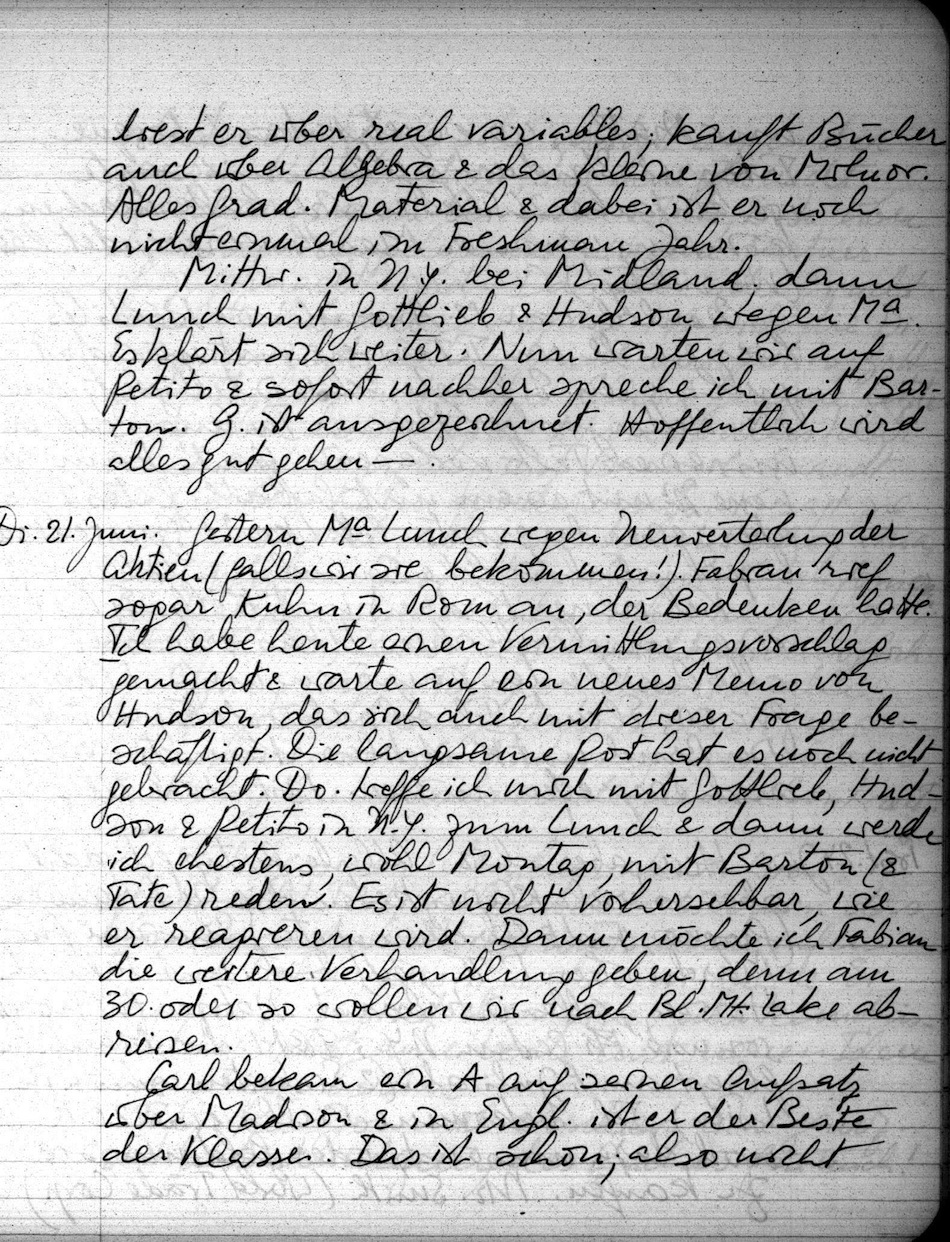 liest er über real variables, kauft Bücher
auch über Algebra & das kleine von Milnor.
Alles grad. Material & dabei ist er noch
nicht einmal im Freshman Jahr.
Mittw. in N.Y. bei Midland, dann
Lunch mit Gottlieb & Hudson wegen Ma.
Es klärt sich weiter. Nun warten wir auf
Petito & sofort nachher spreche ich mit Bar-
ton. G. ist ausgezeichnet. Hoffentlich wird
alles gut gehen —.
Di. 21. Juni. Gestern Ma Lunch wegen Neuverteilung der
Aktien (falls wir sie bekommen!). Fabian rief
sogar Kuhn in Rom an, der Bedenken hatte.
Ich habe heute einen Vermittlungsvorschlag
gemacht & warte auf ein neues Memo von
Hudson, das sich auch mit dieser Frage be-
schäftigt. Die langsame Post hat es noch nicht
gebracht. Do. treffe ich mich mit Gottlieb, Hud-
son & Petito in N.Y. zum Lunch & dann werde
ich ehestens, wohl Montag, mit Barton (&
Tate) reden. Es ist nicht vorhersehbar, wie
er reagieren wird. Dann möchte ich Fabian
die weitere Verhandlung geben, denn am
30. oder so wollen wir nach Bl. Mt. Lake ab-
reisen.
Carl bekam ein A auf seinen Aufsatz
über Madison & in Engl. ist er der Beste
der Klasse. Das ist schön, also nicht